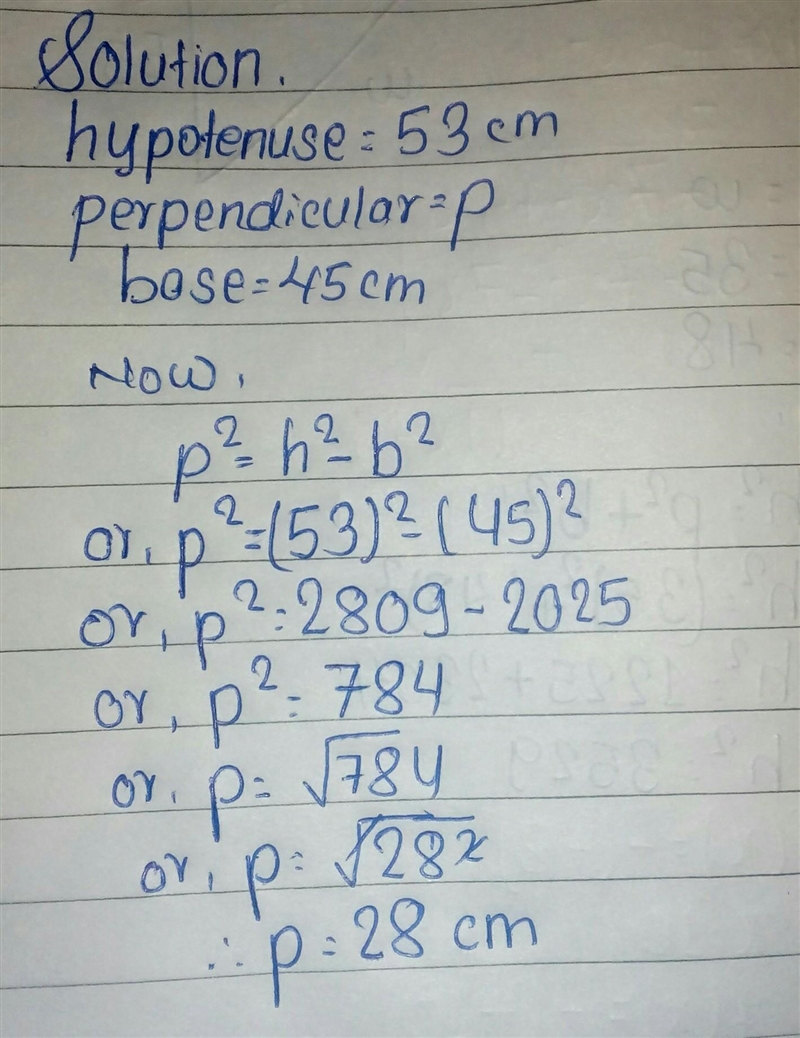 Solution.
hypotenuse = 53 cm
perpendicular = p
base = 45 cm
Now,
p² = h² - b²
or, p² = (53)² - (45)²
or, p² = 2809 - 2025
or, p² = 784
or, p = √784
or, p = √28²
∴ p = 28 cm